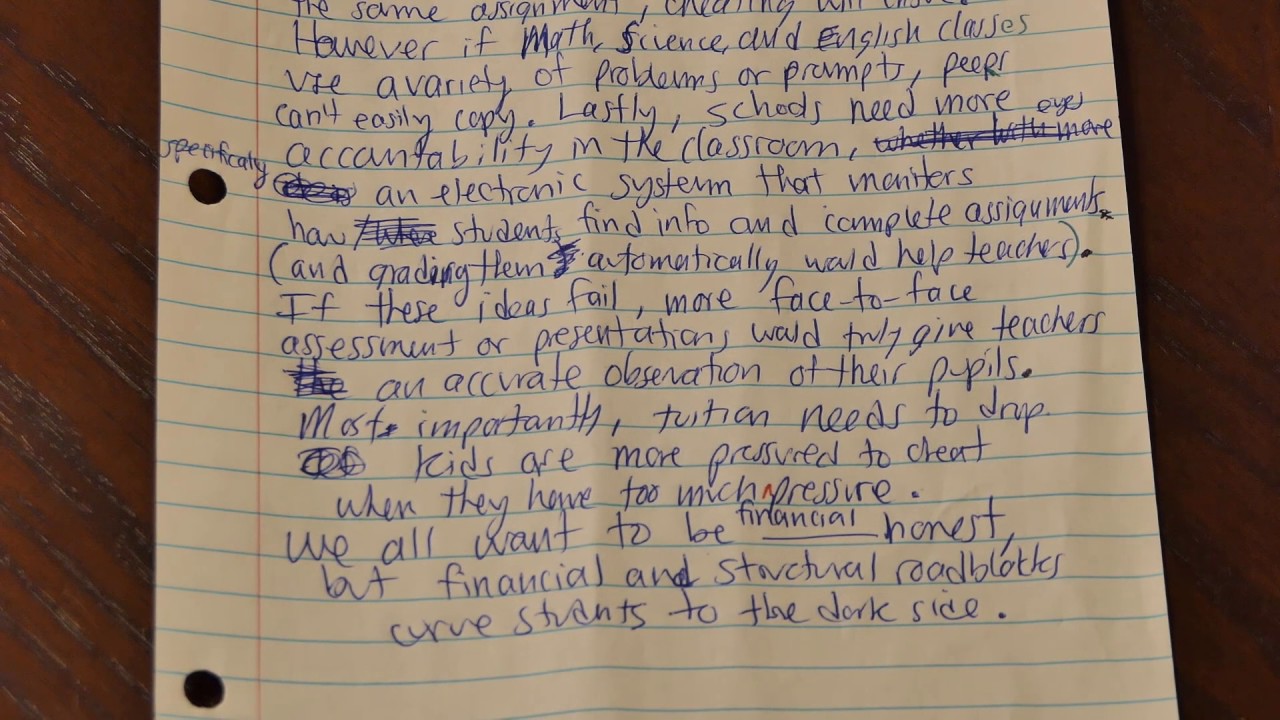 the same assignment, cheating will
However if Math, Science, and English classes
use a variety of problems or prompts, peeps
can't easily copy. Lastly, schools need more eyes
accountability in the classroom, whether with more
specifically an electronic system that moniters
how students find info and complete assignments
(and grading them automatically would help teachers).
If these ideas fail, more face-to-face
assessment or presentations would truly give teachers
an accurate observation of their pupils.
Most importantly, tuition needs to drop.
Kids are more pressured to cheat
when they have too much ^ pressure.
financial
We all want to be ______ honest,
but financial and structural roadblocks
curve students to the dark side.